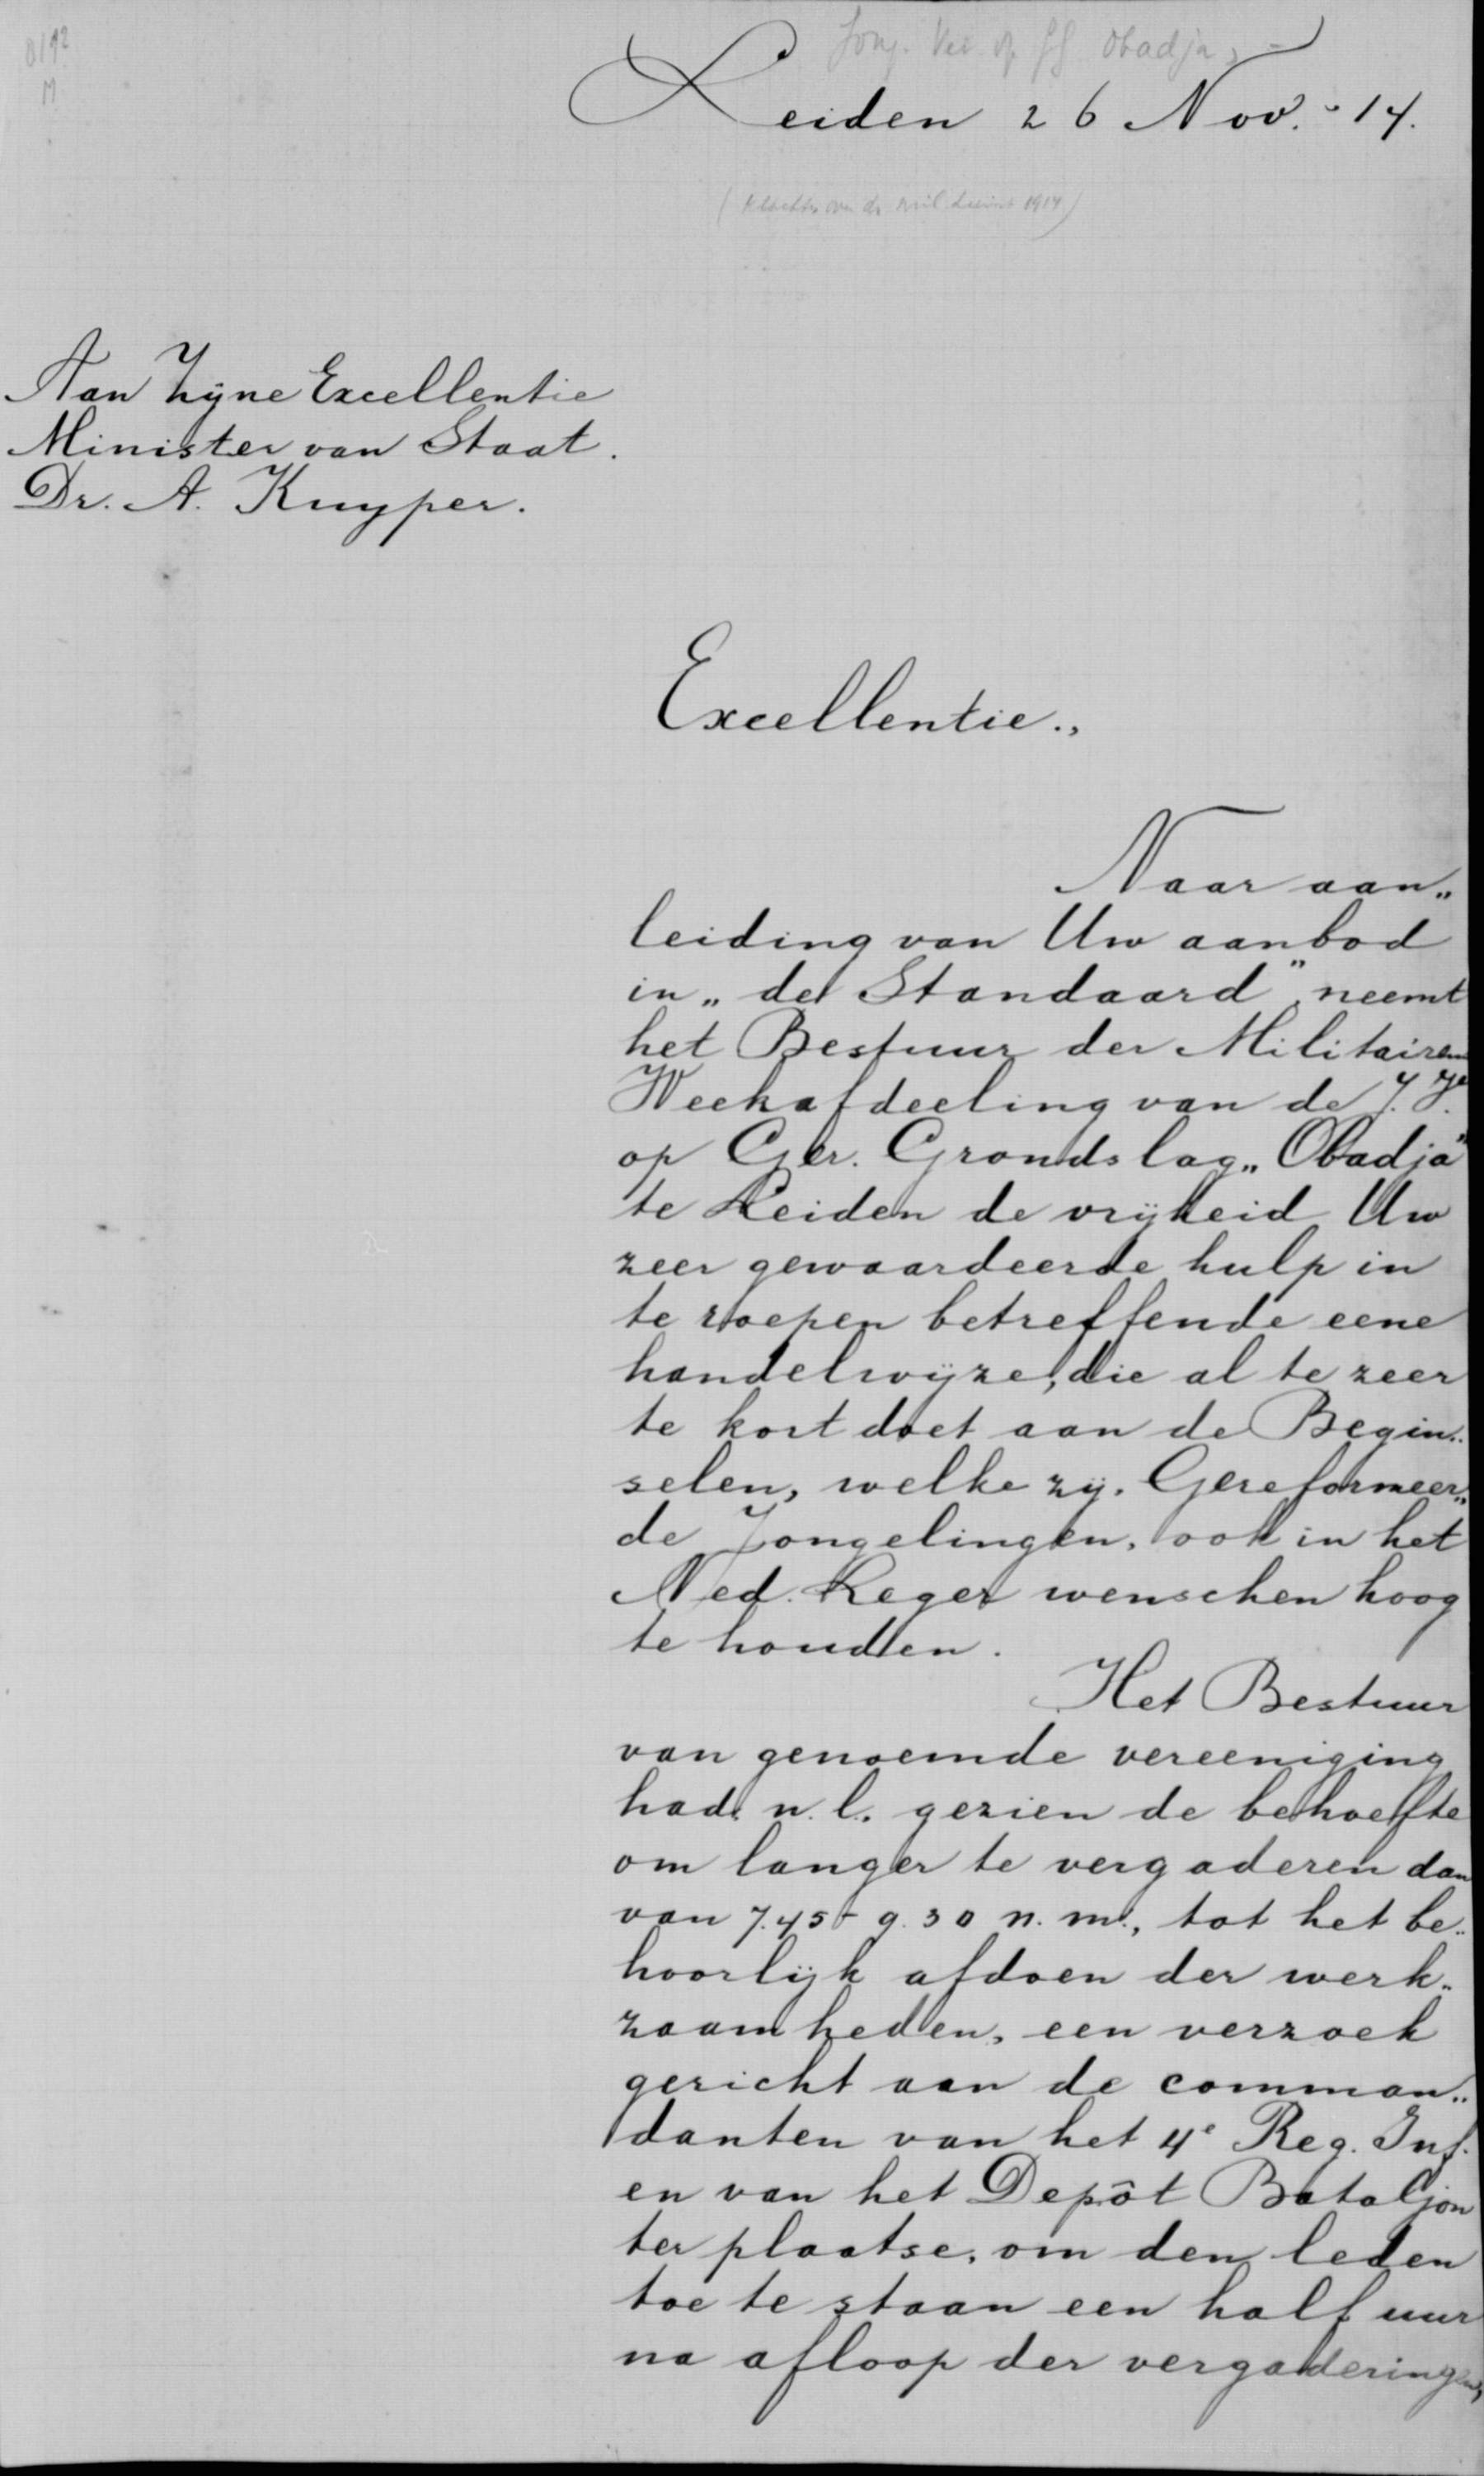 Jong. Ver. op GG Obadja,
Leiden 26 Nov. - 14.
Aan Zijne Excellentie
Minister van Staat.
Dr. A. Kuyper.
Excellentie.,
Naar aan„
leiding van Uw aanbod
in „de Standaard" neemt
het Bestuur der Militairen
Weekafdeeling van de J. V.
op Ger. Grondslag „Obadja"
te Leiden de vrijheid Uw
zeer gewaardeerde hulp in
te roepen betreffende eene
handelwijze, die al te zeer
te kort doet aan de Begin„
selen, welke zij, Gereformeer„
de Jongelingen, ook in het
Ned. Leger wenschen hoog
te houden.
Het Bestuur
van genoemde vereeniging
had n.l. gezien de behoefte
om langer te vergaderen dan
van 7.45 - 9.30 n.m., tot het be„
hoorlijk afdoen der werk„
zaamheden, een verzoek
gericht aan de comman„
danten van het 4e Reg. Inf.
en van het Depôt Bataljon
ter plaatse, om den leden
toe te staan een half uur
na afloop der vergaderingen,